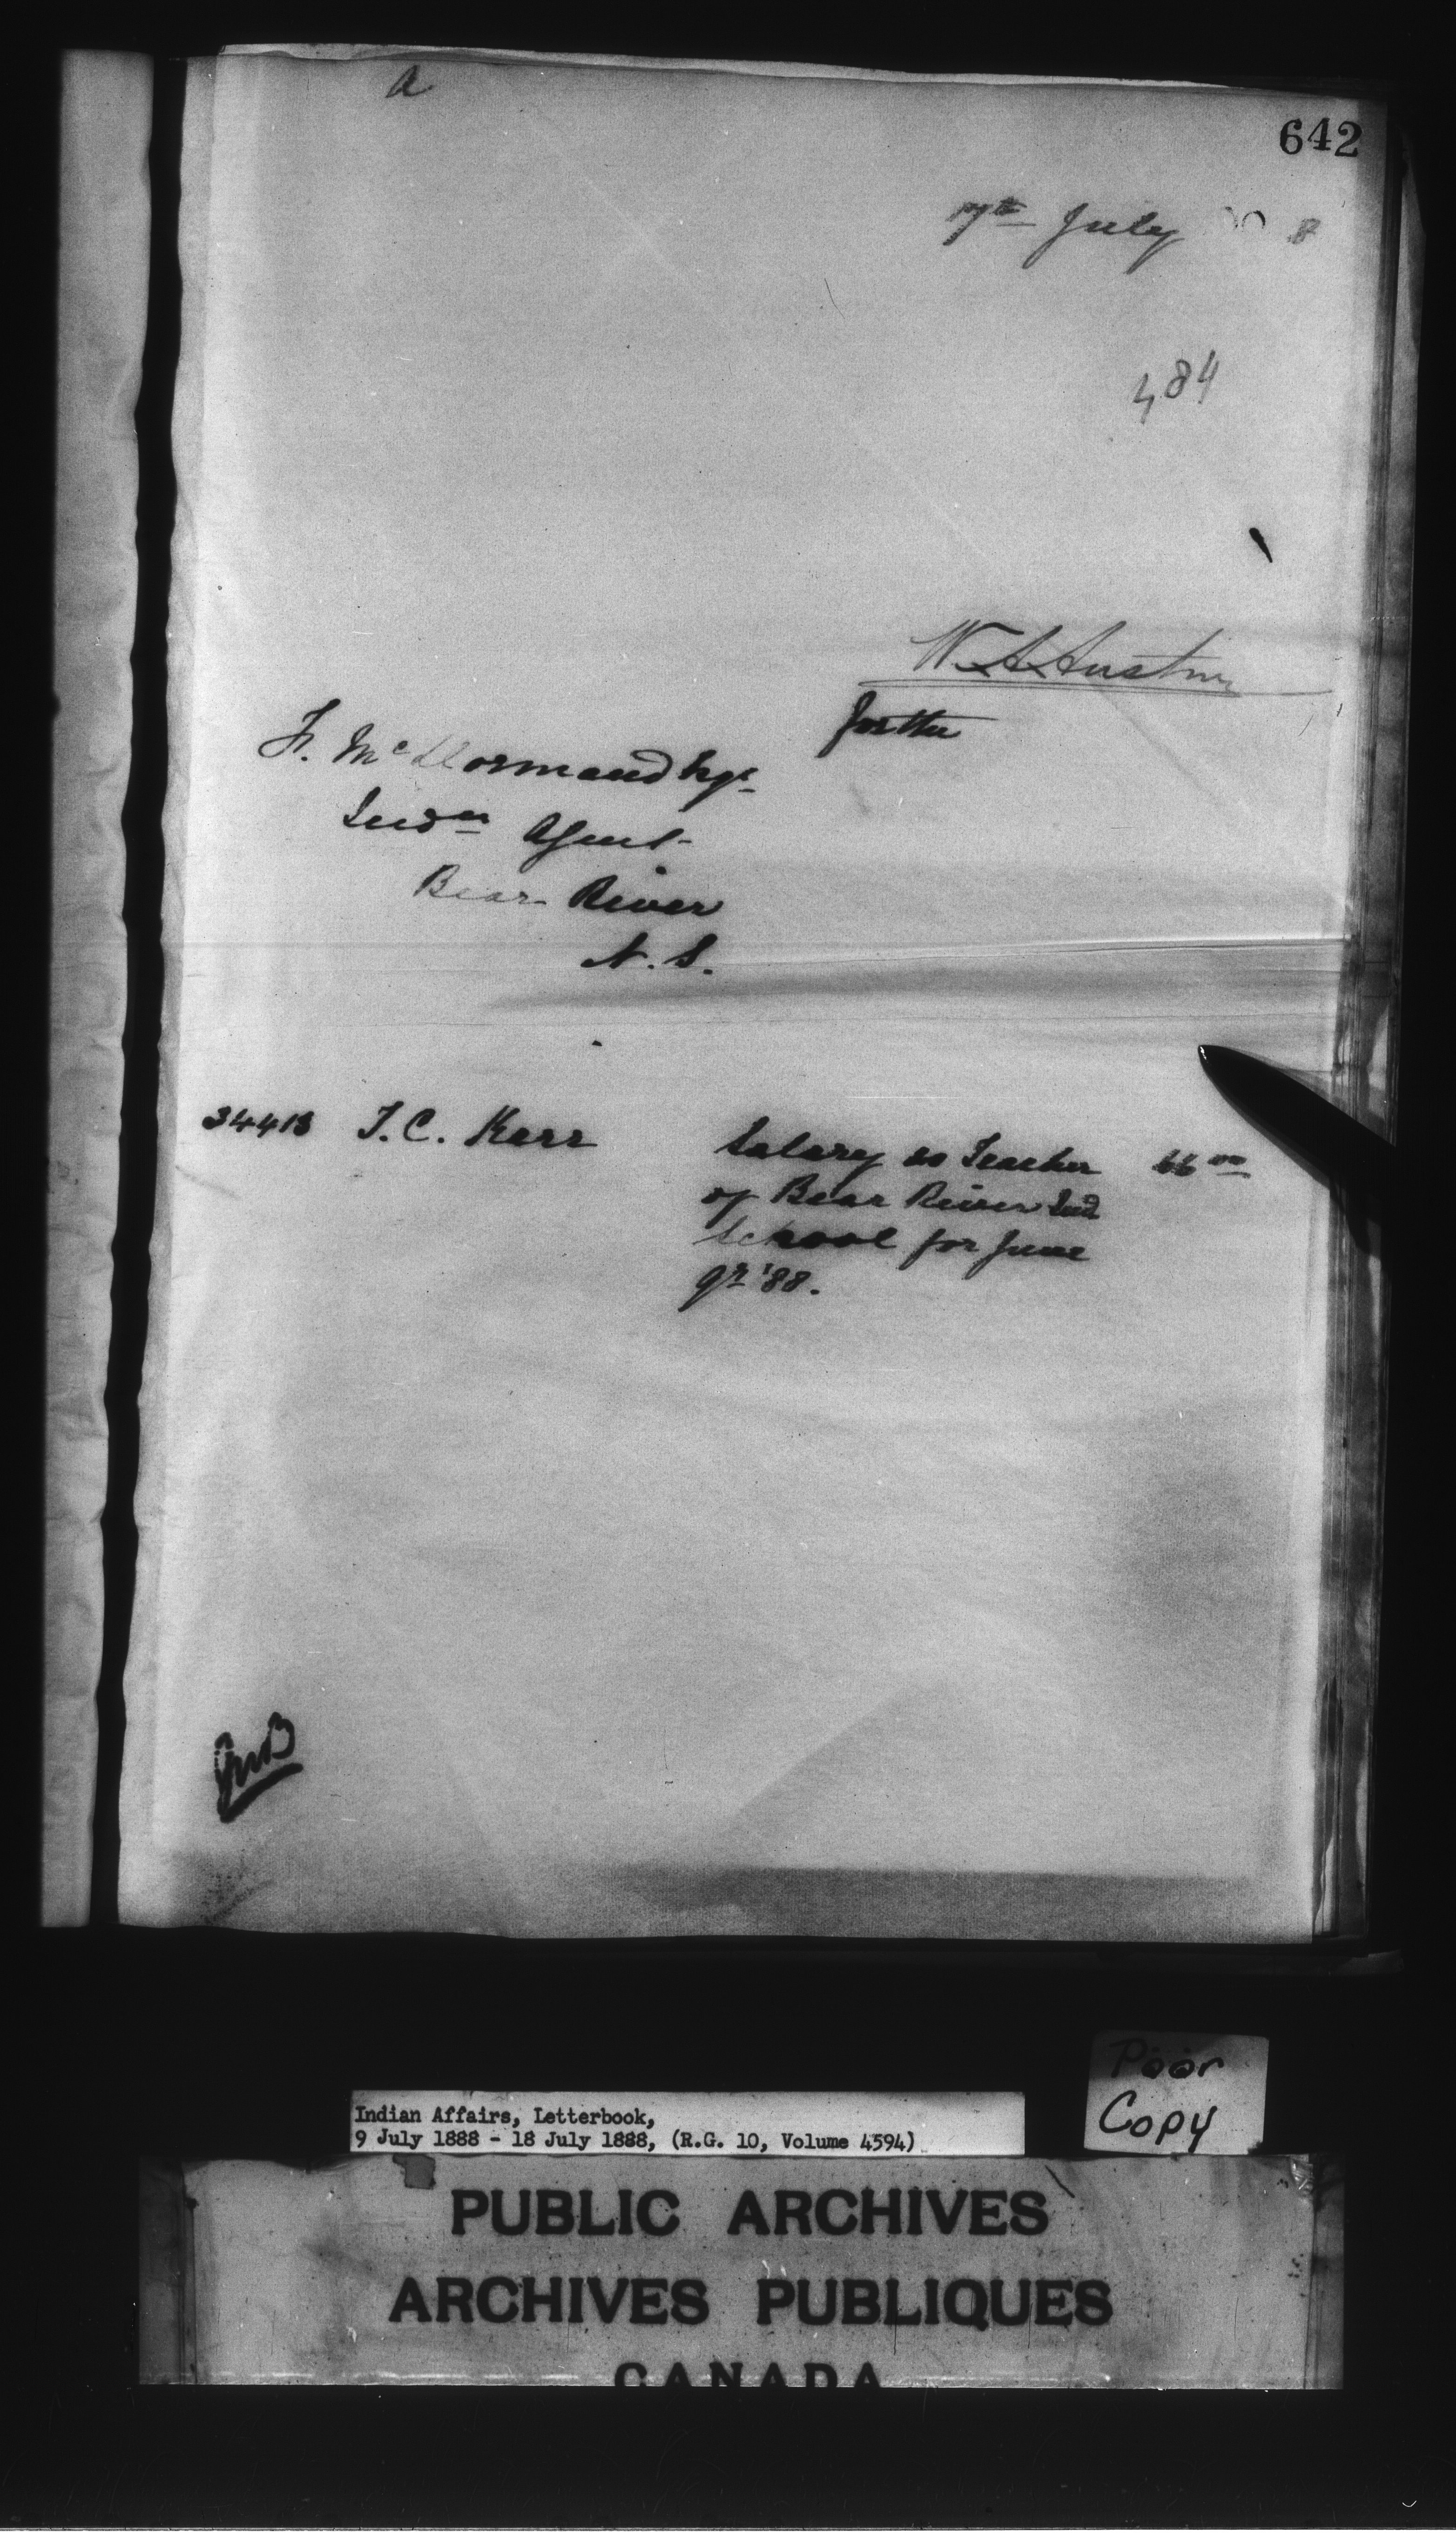 a
642
17th July 8
484
W. A. Austin
for the
F. McDormand Esq.
Indn Agent
Bear River
N.S.
34418 J. C. Kerr Salary as Teacher 66 00
of Bear River Ind
School for June
qr '88.
JMB
Poor
Copy
Indian Affairs, Letterbook,
9 July 1888 - 18 July 1888, (R.G. 10, Volume 4594)
PUBLIC ARCHIVES
ARCHIVES PUBLIQUES
CANADA